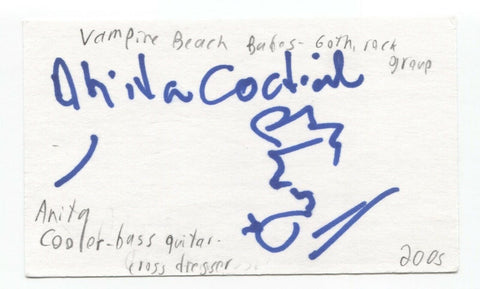 Vampire Beach Babes - Goth, rock
group
Anita
Cooler - bass guitar -
cross dresser
2005